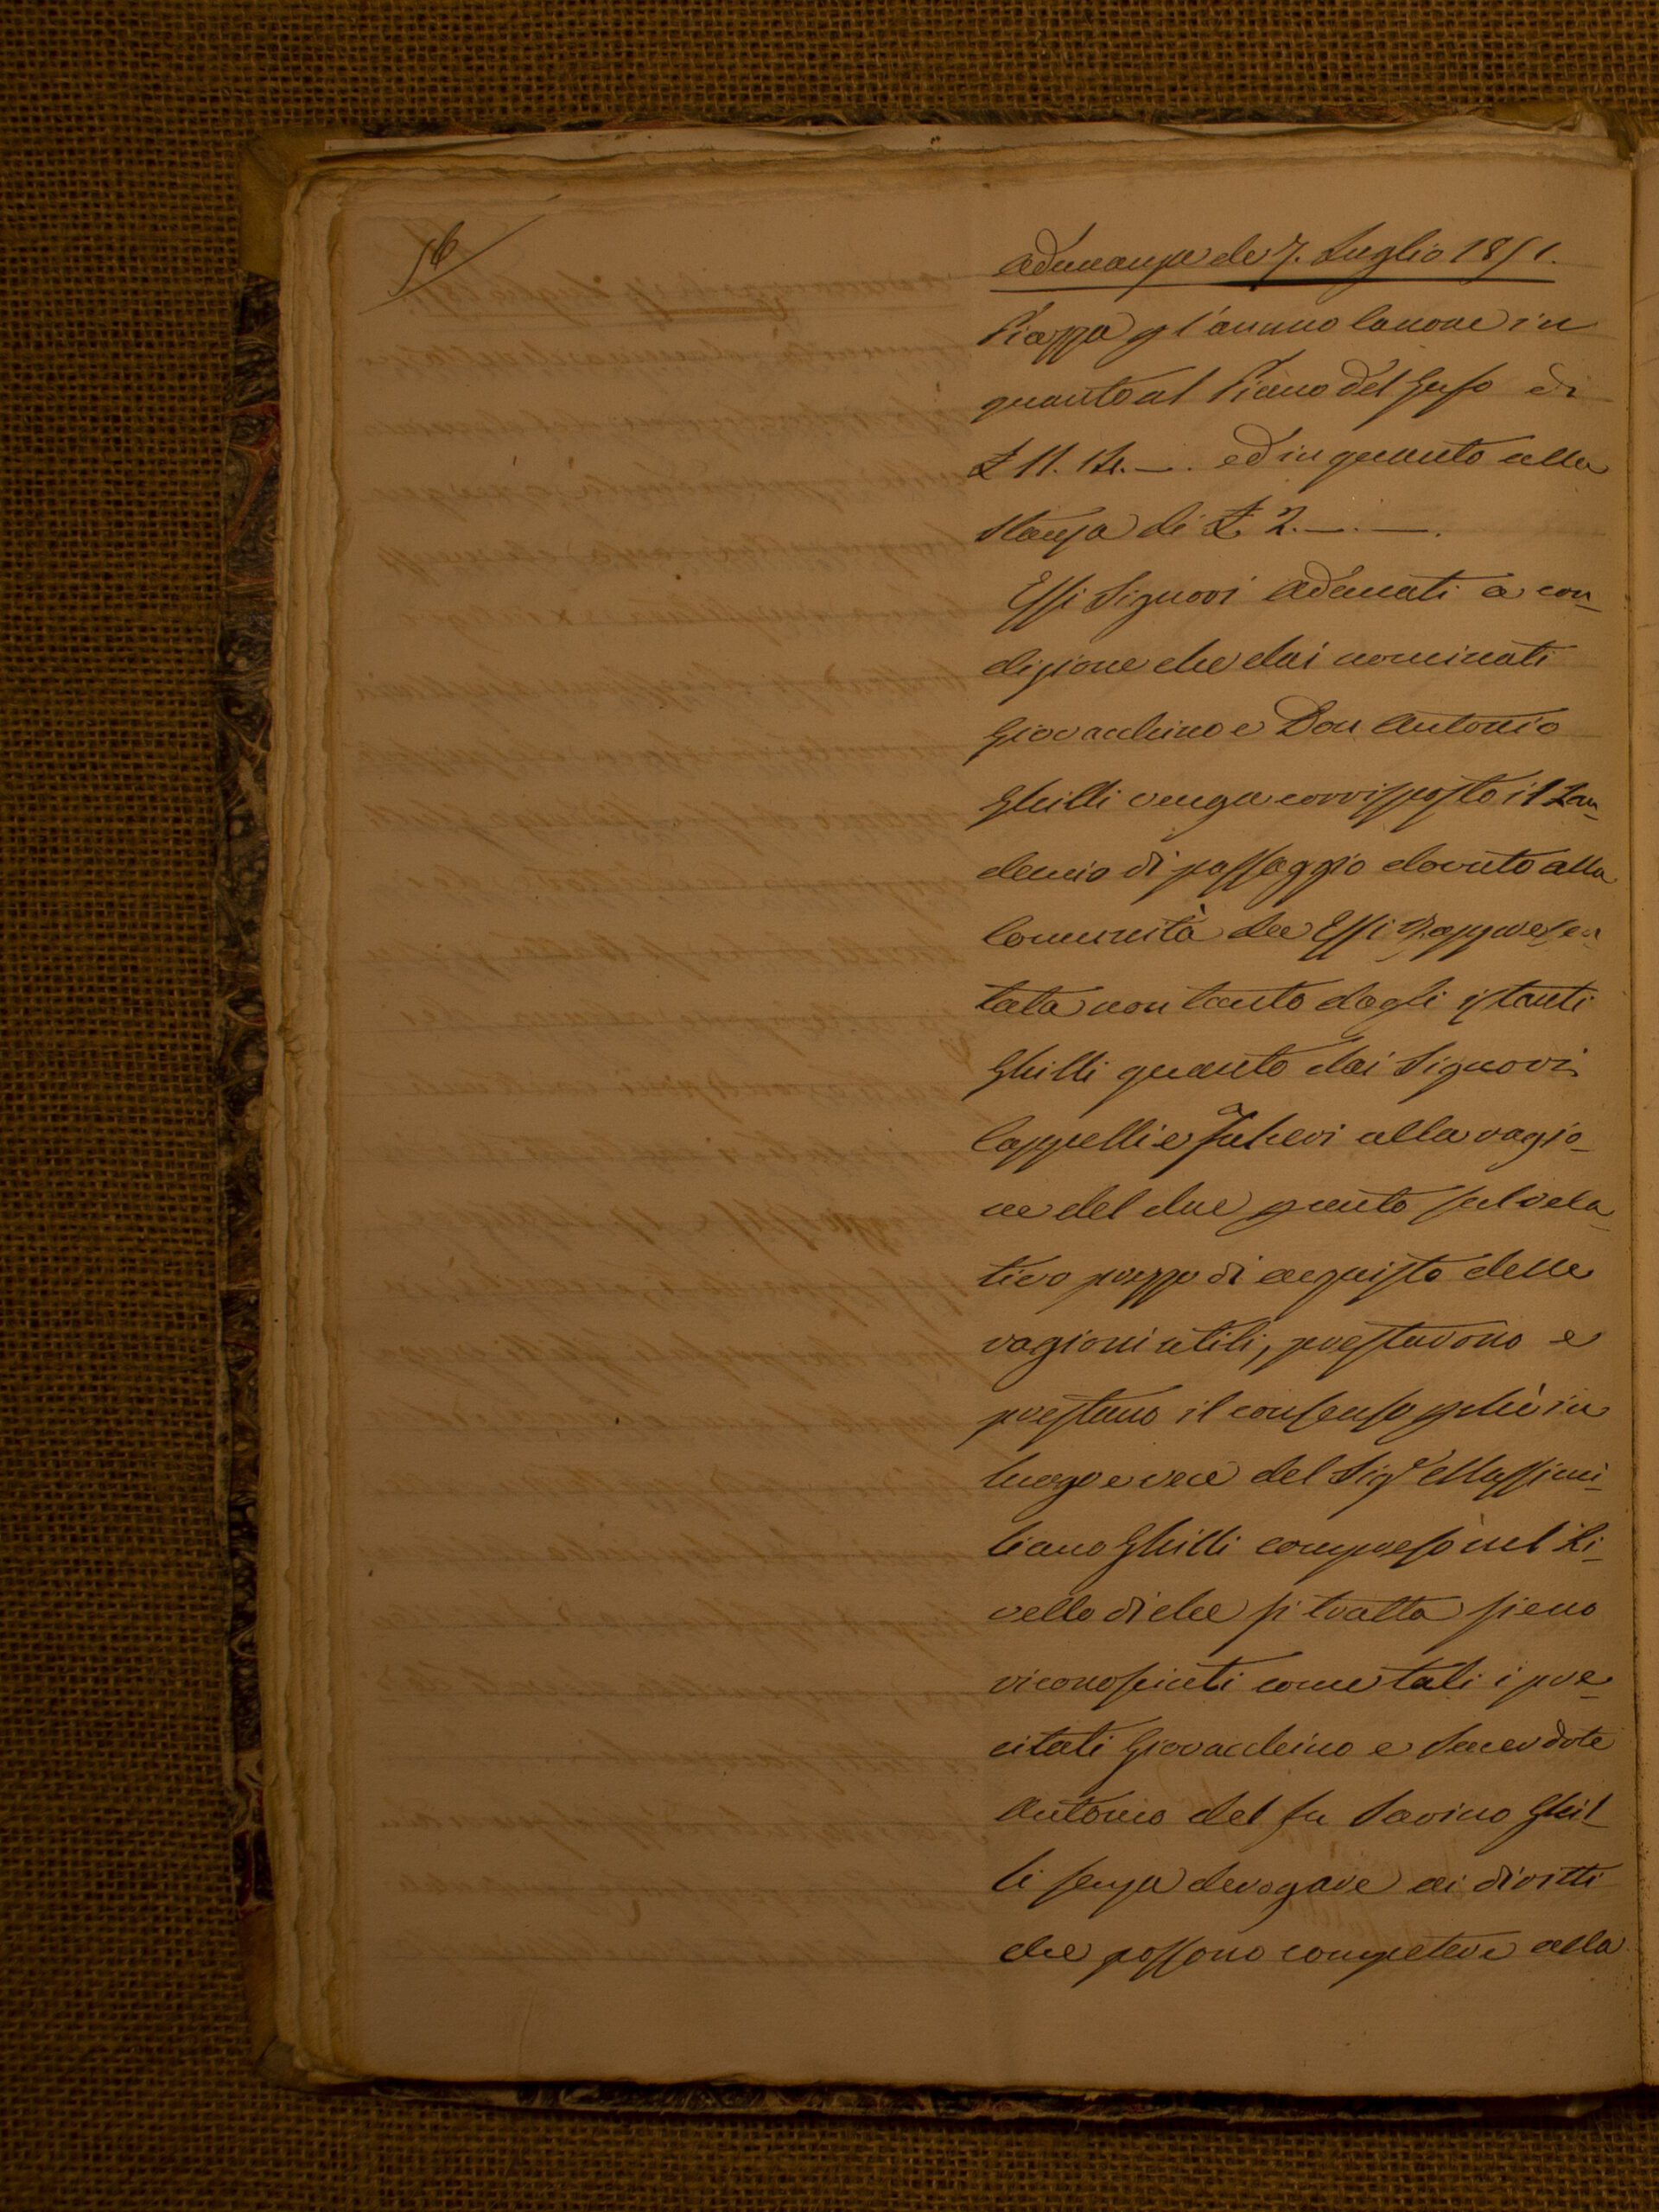 16
Adunanza de 7. Luglio 1851.
Piazza pl'annuo Canone in
quanto al Piano del Guso di
£ 11. 12. —. ed in quanto alla
Stanza di £ 2. —. —.
Essi Signori Adunati a con_
dizione che dai nominati
Giovacchino e Don Antonio
Ghilli venga corrisposto il Lau_
demio di passaggio dovuto alla
Comunità da Essi Rappresen_
tata non tanto dagli istanti
Ghilli quanto dai Signori
Cappelli e alla ragio_
ne del due p cento sul rela_
tivo prezzo di acquisto delle
ragioni utili, prestarono e
prestano il consenso pchè in
luogo e vece del Sigr Massimi_
liano Ghilli compreso nel Li_
vello di che si tratta sieno
riconosciuti come tali i pre_
citati Giovacchino e Sacerdote
Antonio del fu Savino Ghil_
li senza derogare ai diritti
che possono competere alla